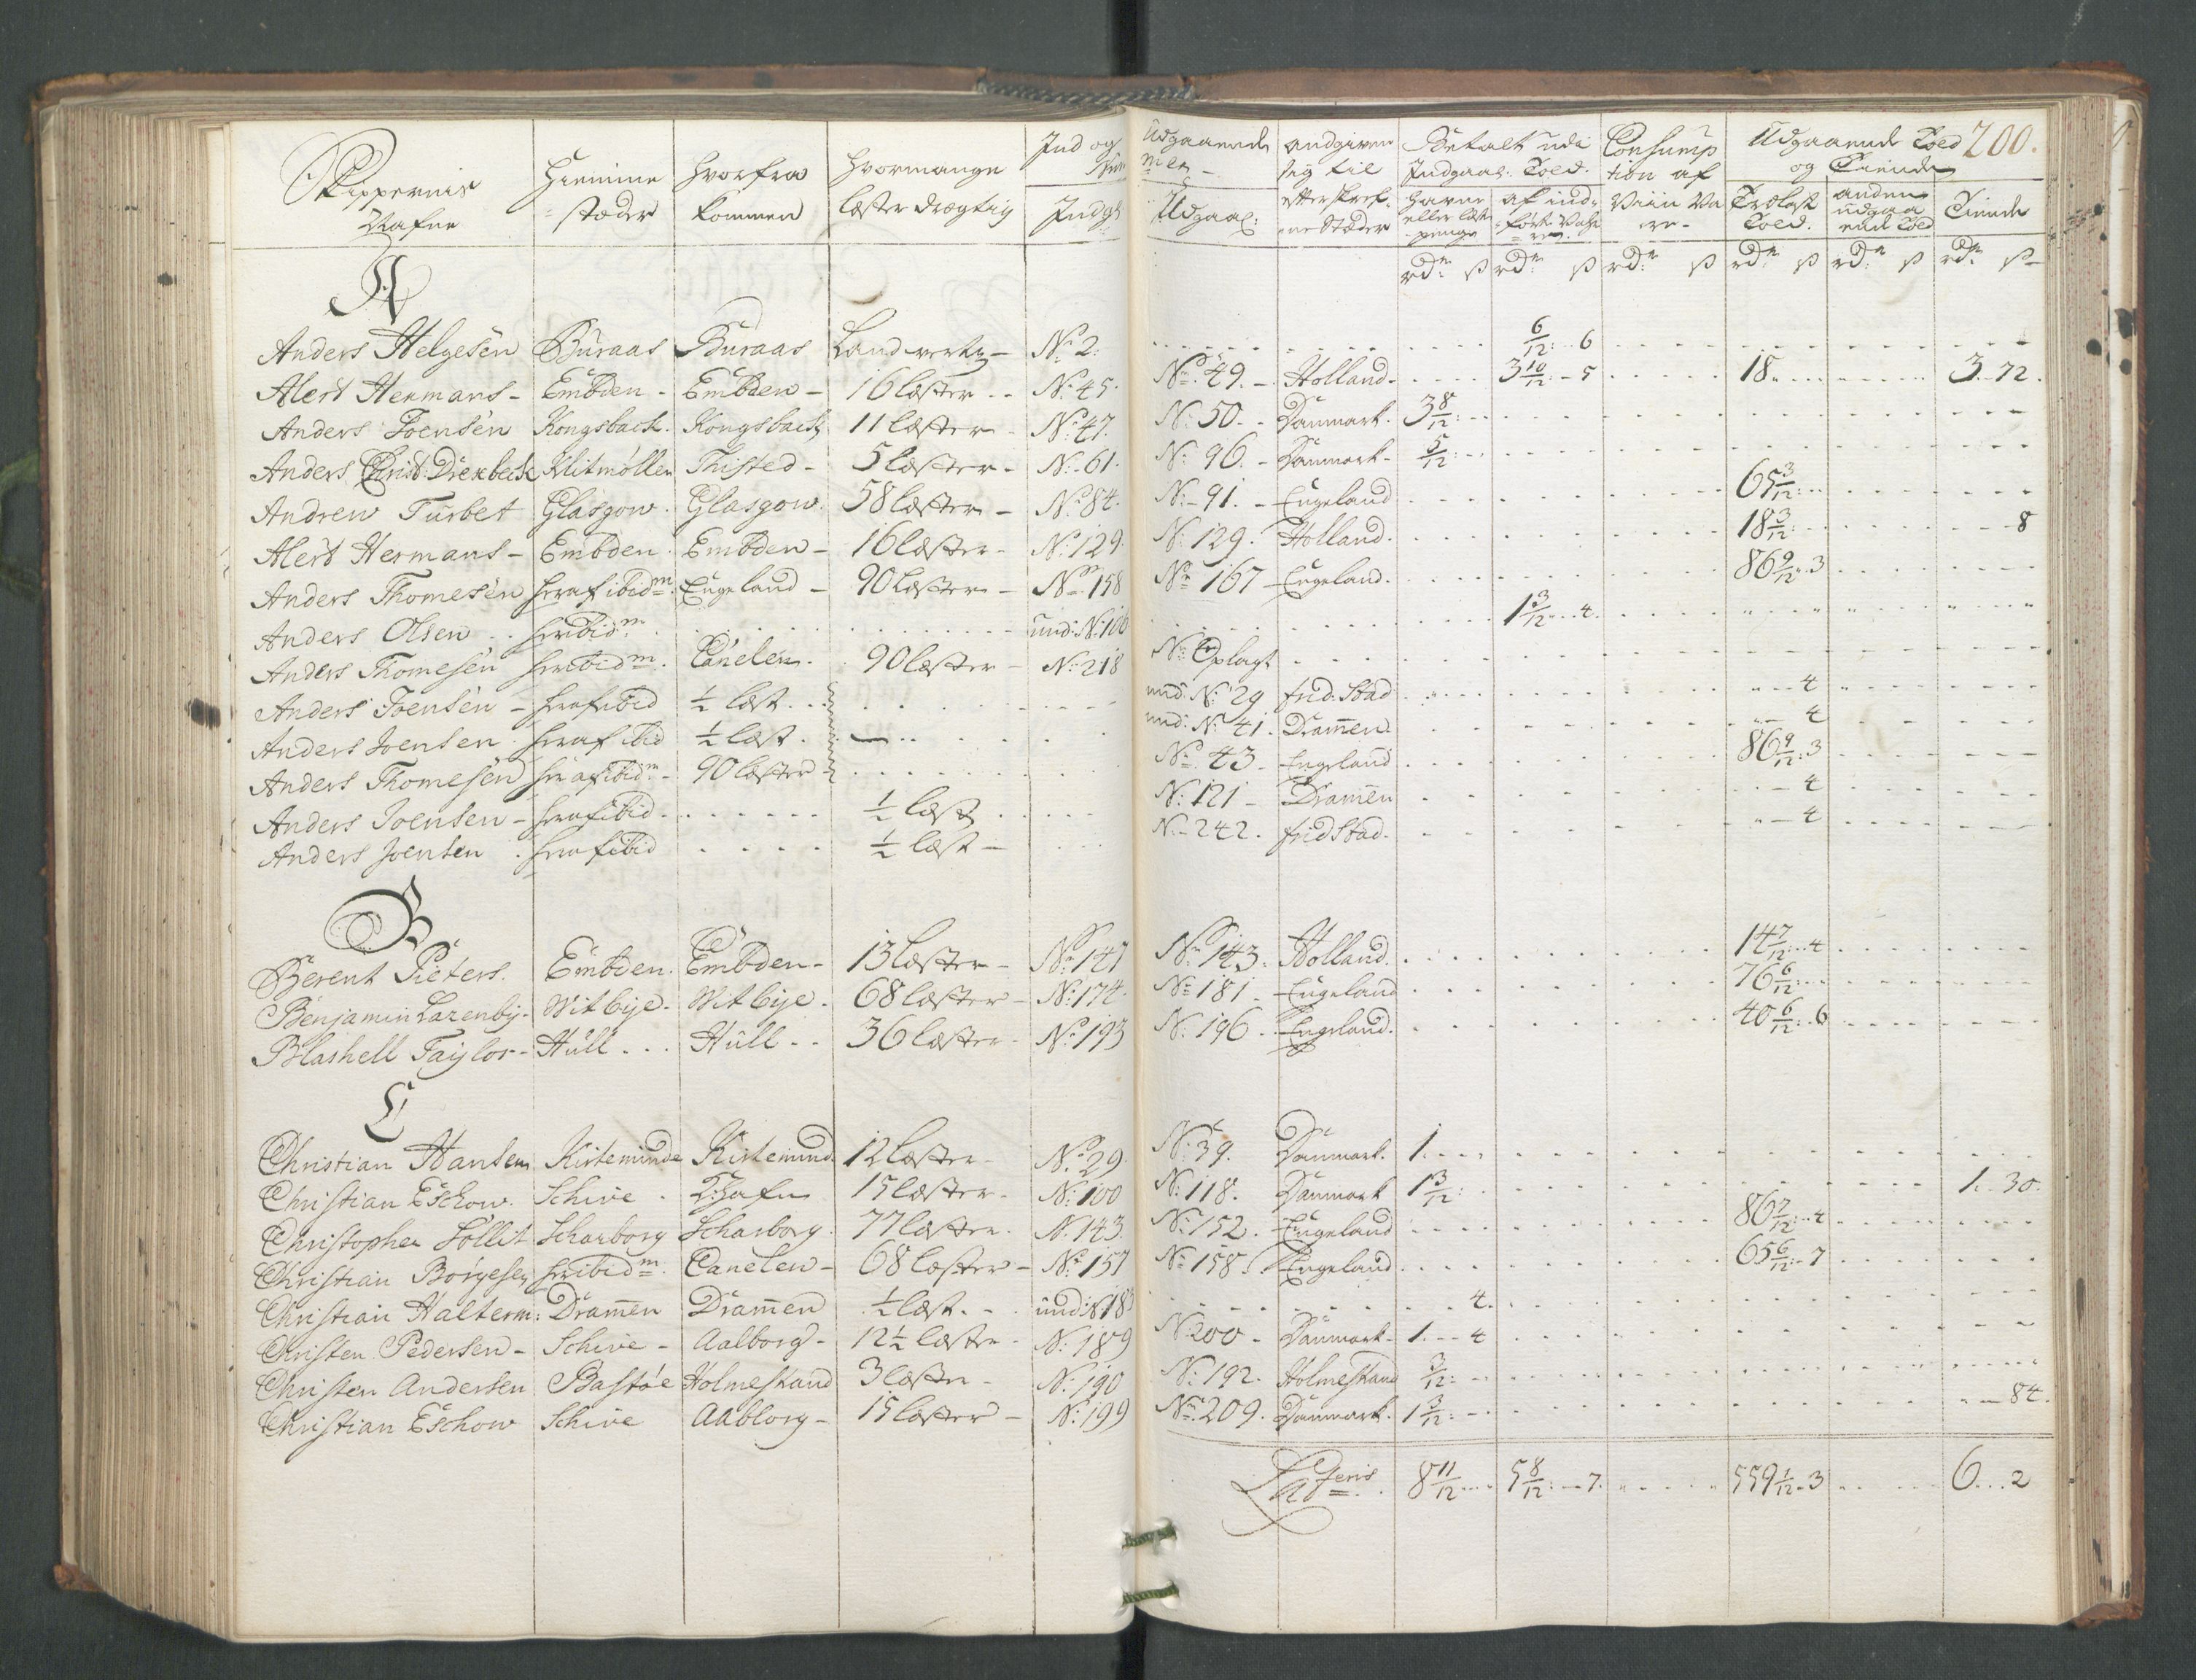 200.
Skippernis Nafne | Hiemme stæder | Hvorfra kommen | hvormange læster drægtig | Ind og | Udgaaende | andgiven sig til | Betalt udi Indgaae: Told. | Consumption af Viin Vare | Udgaaende Told og Tiende
Indg: | Udgaae: | efterskrefne Stæder | Havne eller læstepenge | af indførte Vahre | Trælast Told. | anden udgaaend Told | Tiende
rdr ß | rdr ß | rdr ß | rdr ß | rdr ß | rdr ß
A
Anders Helgesen | Buraas | Buraas | Land werts | No 2. | 6/12: 6
Alert Hermans | Embden | Embden | 16 læster | No 45. | No 49. | Holland | 3 10/12: 5 | 18 | 3 72.
Anders Joensen | Kongsback. | Kongsback | 11 læster | No 47. | No 50. | Danmark. | 3 8/12:
Anders Christ: Dierbech | Klitmøllen | Thisted | 5 læster | No 61. | No 96. | Danmark | 5/12:
Andrew Turbet | Glasgow. | Glasgow. | 58 læster | No 84. | No 91. | Engeland | 65 3/12:
Alert Hermans | Embden. | Embden | 16 læster | No 129. | No 129. | Holland. | 18 3/12: | 8
Anders Thomesen | her af ibidm. | Engeland | 90 læster | No 158 | No 167 | Engeland. | 86 9/12 3
Anders Olsen | her ibidm. | und: No 100 | 1 3/12 4.
Anders Thomesen | her ibidm. | Canelen. | 90 læster | No 218 | No Oplagt
Anders Joensen | her af ibid | 1/2 læst. | und: No 29 | frid. Stad | 4
Anders Joensen | her af ibid | 1/2 læst. | und: No 41. | Dramen. | 4
Anders Thomesen | her af ibidm | 90 læster | No 43. | Engeland | 86 9/12: 3
Anders Joensen | her af ibid. | 1/2 læst | No 121 | Dramen | 4
Anders Joensen | her af ibid | 1/2 læst | No 242. | frid Stad. | 4
B
Berent Pieters. | Embden. | Embden | 13 læster | No 141 | No 143. | Holland. | 14 7/12: 4
Benjamin Lazenby. | Witbye. | Witbye. | 68 læster | No 174. | No 181 | Engeland | 76 6/12:
Blashell Taylor | Hull | Hull | 36 læster | No 193 | No 196. | Engeland. | 40 6/12: 6
C
Christian Hansen | Kirteminde | Kirtemund. | 12 læster | No 29. | No 39. | Danmark. | 1.
Christian Eschow. | Schive | K: Hafn | 15 læster. | No 100 | No 118. | Danmark | 1 3/12: | 1. 30.
Christopher Sollit | Scharborg | Scharborg. | 77 læster. | No 143. | No 152. | Engeland | 86 7/12: 4
Christian Børgesen | her ibidm. | Canelen | 68 læster | No 151 | No 158. | Engeland | 65 6/12: 7
Christian Halterm: | Dramen | Dramen | 1/2 læst. | und: No 18 | 4.
Christen Pedersen | Schive | Aalborg | 12 1/2 læster | No 189 | No 200 | Danmark | 1. 4
Christen Andersen | Bastøe | Holmestrand | 3 læster | No 190 | No 192. | Holmestrand | 3/12:
Christian Eschow | Schive | Aablorg | 15 læster | No 199 | No 209. | Danmark. | 1 3/12: | 84.
Lateris | 8 11/12 | 5 8/12: 7. | 559 1/12 3 | 6 2